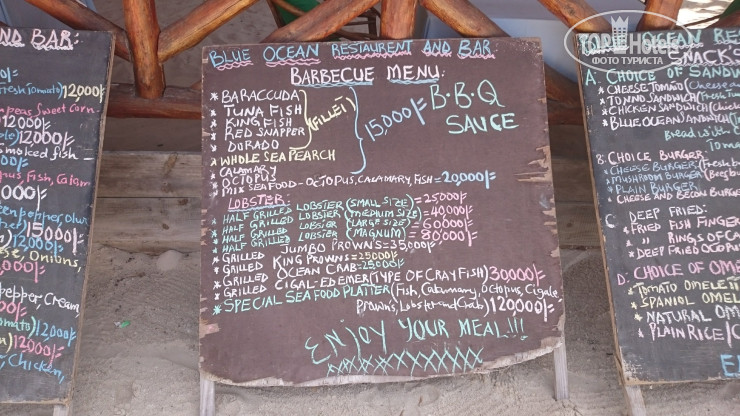 ND BAR
12,000/-
12,000/-
peas Sweet Corn
12,000/-
12,000/-
smoked fish
us, Fish, Calam
000/-
15,000/-
Onions,
,000/-
epper, Cream
,000/-
12,000/-
12,000/-
Chicken,
BLUE OCEAN RESTAURENT AND BAR
BARBECUE MENU:
* BARACCUDA
* TUNA FISH
* KING FISH
* RED SNAPPER
* DORADO
(FILLET)
* WHOLE SEA PEARCH
* CALAMARY
* OCTOPUS
15,000/-
B·B·Q
SAUCE
* MIX SEAFOOD - OCTOPUS, CALAMARY, FISH = 20,000/-
LOBSTER:
* HALF GRILLED LOBSTER (SMALL SIZE) = 25000/-
* HALF GRILLED LOBSTER (MEDIUM SIZE) = 40,000/-
* HALF GRILLED LOBSTER (LARGE SIZE) = 60000/-
* HALF GRILLED LOBSTER (MAGNUM) = 80,000/-
* GRILLED JUMBO PROWNS = 35,000/-
* GRILLED KING PROWNS = 25000/-
* GRILLED OCEAN CRAB = 25000/-
* GRILLED CIGAL-EDEMER (TYPE OF CRAY FISH) 30000/-
* SPECIAL SEA FOOD PLATTER (Fish, Calamary, Octopus, Cigale
Prowns, Lobster and Crab) 120,000/-
ENJOY YOUR MEAL!!!
OCEAN RES
SNACK'S
A. CHOICE OF SANDW
* CHEESE TOMATO (Cheese
* TONNO SANDWICH (Fresh
* CHICKEN SANDWICH (Chick
* BLUE OCEAN SANDWICH
bread with
Tomato
B. CHOICE BURGER:
* CHEESE BURGER (Fresh bu
* MUSHROOM BURGER (Beef bu
* PLAIN BURGER
CHEESE AND BECON BURGE
C. DEEP FRIED:
* FRIED FISH FINGER
* " RINGS OF CA
* DEEP FRIED OCTOPU
D. CHOICE OF OME
* TOMATO OMELET
* SPANIOL OMEL
* NATURAL OM
* PLAIN RICE/
E
TopHotels
ФОТО ТУРИСТА